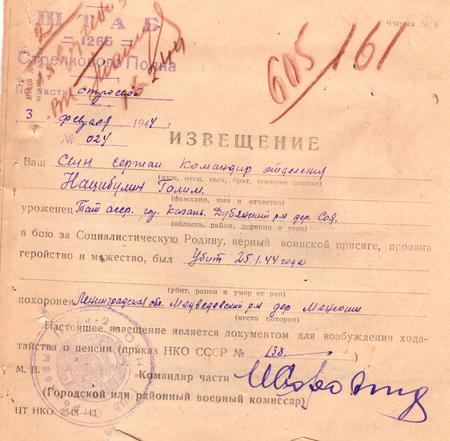 Форма № 4
ШТАБ
1265
Стрелкового Полка
По части строевой
605/161
3 февраля 1944 г.
№ 024
ИЗВЕЩЕНИЕ
Ваш Сын сержан командир отделения
(муж, отец, сын, брат, военное звание)
Нацибулин Голим.
(фамилия, имя и отчество)
уроженец Тат асср. гор. Казань. Дубянский р-н дер
(область, район, деревня и село)
в бою за Социалистическую Родину, верный воинской присяге, проявив
геройство и мужество, был Убит 25.1.44 года
(убит, ранен и умер от ран)
похоронен Ленинградская обл. Медведевский р-н дер Менюши
(место похорон)
Настоящее извещение является документом для возбуждения хода-
тайства о пенсии (приказ НКО СССР № 138.)
М. П.
Командир части
(Городской или районный военный комиссар)
ЦТ НКО 2543—43